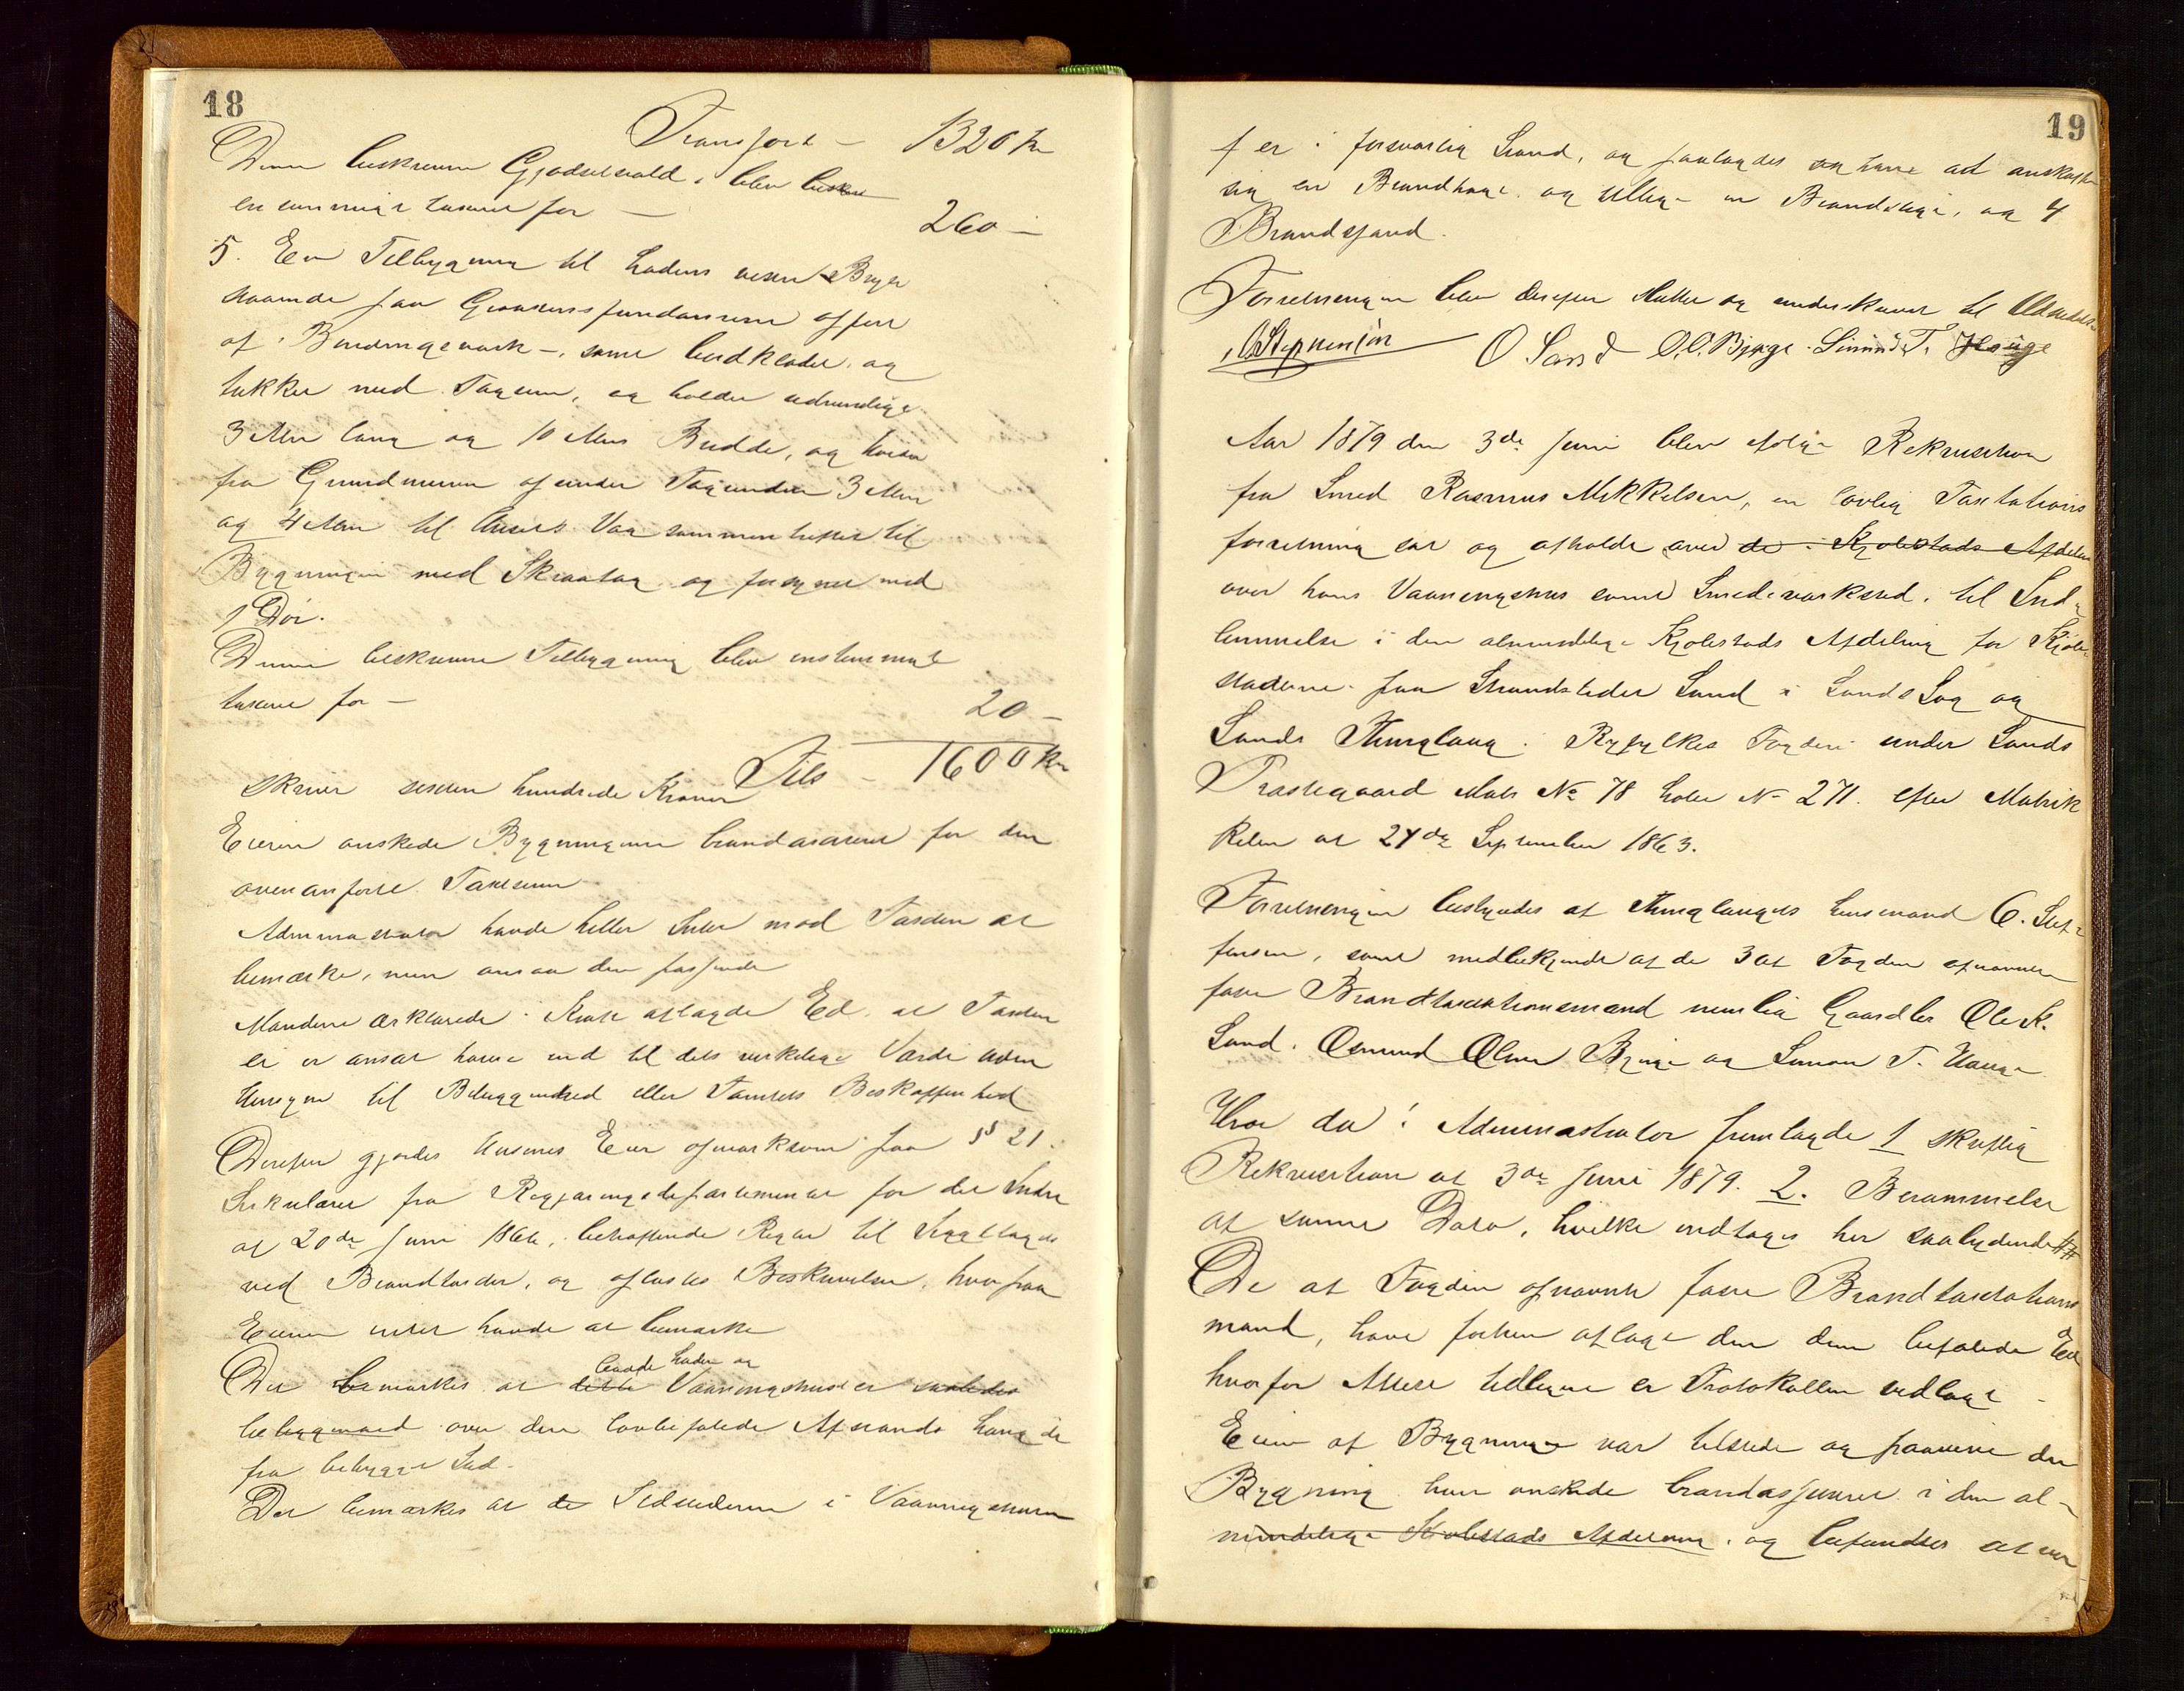 18
Transport – 1320 kr
Denne beskrevne Gjødselstald, blev
enstemmigt taxeret for – 260 –
5. En Tilbygning til Ladens vestre
staaende paa Graasteensfundament opført
af Bindingsværk –, samt bordklædt, og
tækket med Tagsten, og holder udvendige
3 Alen lang og 10 Alens Bredde, og høide
fra Grundmuren og under Tagrenden 3 Alen
og 4 Alen til Aasen. Var sammenheftet til
Bygningen med Skraatag og forsynet med
1 Dør.
Denne beskrevne Tilbygning blev enstemmigt
taxeret for – 20 –
Tils – 1600 kr
skriver sexten hundrede Kroner
Eieren ønskede Bygningerne brandassureret for den
ovenanførte Taxtsum
Administrator havde heller Intet mod Taxten at
bemærke, men ansaa den passende
Mændene erklærede i Kraft aflagde Ed, at Taxten
ei er ansat høiere end til dets virkelige Værdi uden
Hensyn til Beliggenhed eller Tomtens Beskaffenhed
Derefter gjordes Husenes Eier opmærksom paa § 21.
Sirkulære fra Regjeringsdepartementet for det Indre
af 20de Juni 1866, betræffende Regler til Iagttagelse
ved Brandtaxter, og oplæstes Beskrivelsen, hvorpaa
Eieren intet havde at bemærke
baade Laden og
Det bemærkes at dette Vaaningshuset er saaledes
beliggenhed over den lovbefalede Afstands Længde
fra bebygget Sted.
Det bemærkes at de Ildstederne i Vaaningshuset
19
f er i forsvarlig Stand, og paalagdes at have at anskaffe
sig en Brandhage og tillige en Brandstige, og 4
Brandspand.
Forretningen blev derefter sluttet og underskrevet til
O Sand O.O. Bjerge. Simon T. Hauge
Aar 1879 den 3de Juni blev efter Rekvisition
fra Smed Rasmus Mikkelsen, en lovlig Taxtations
forretning sat og afholdt over de i Kjøbstads Afdelin
over hans Vaaningshus samt Smedeværksted, til Ind-
lemmelse i den almindelige Kjøbstads Afdeling for Kjøb-
stæderne paa Strandstedet Sand i Sands Sogn og
Sands Thinglaug i Ryfylkes Fogderi under Sands
Præstegaard Matr No 78 Løbe No 271. efter Matrik
kelen af 24de September 1863.
Forretningen bestyredes af Thinglaugets Lensmand C. Stef-
fensen, samt medbetjendt af de 3 af Fogden opnævnte
faste Brandtaxtationsmænd nemlig Gaardbr Ole K.
Sand. Osmund Olsen Bjerge og Simon T. Hauge
Hvor da! Administrator fremlagde 1 skriftlig
Rekvisition af 3de Juni 1879. 2. Berammelse
af samme Dato, hvilke indtages her saalydende ##
De af Fogden opnævnte faste Brandtaxtations
mænd, have forhen aflagt den dem befalede Ed
hvorfor Attest tidligere er Protokollen vedlagt –
Eieren af Bygningen var tilstede og paaviste den
Bygning han ønskede brandassureret i den al-
mindelige Kjøbstads Afdeling, og befandtes at vær